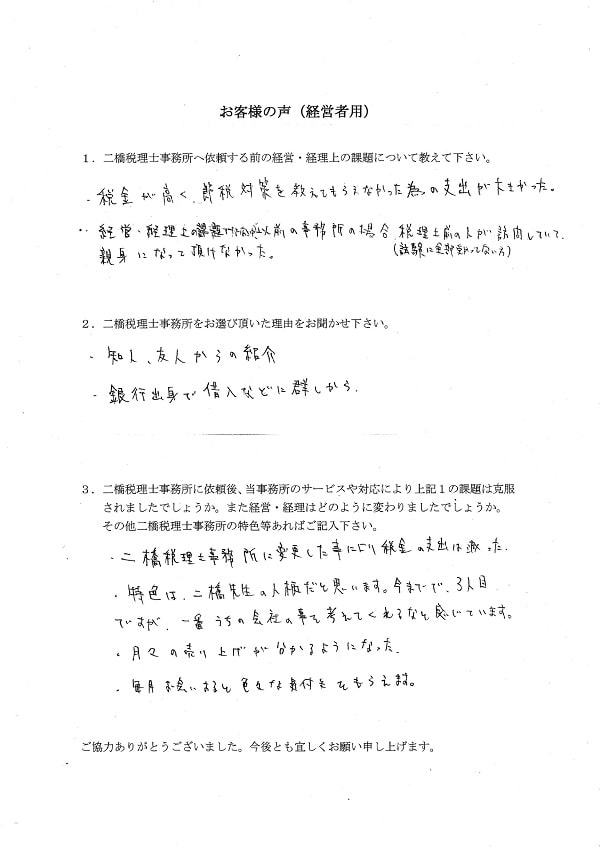 お客様の声（経営者用）
１．二橋税理士事務所へ依頼する前の経営・経理上の課題について教えて下さい。
・税金が高く、節税対策を教えてもらえなかった為の支出が大きかった。
・経営・経理上の 以前の事務所の場合、税理士前の人が訪問していて、
(試験に全部受かってない方)
親身になって頂けなかった。
２．二橋税理士事務所をお選び頂いた理由をお聞かせ下さい。
・知人、友人からの紹介
・銀行出身で借入などに群しから、
３．二橋税理士事務所に依頼後、当事務所のサービスや対応により上記１の課題は克服
されましたでしょうか。また経営・経理はどのように変わりましたでしょうか。
その他二橋税理士事務所の特色等あればご記入下さい。
・二橋税理士事務所に変更した事により税金の支出は減った。
・特色は、二橋先生の人柄だと思います。今までで、3人目
ですが、一番うちの会社の事を考えてくれるなと感じています。
・月々の売り上げが分かるようになった。
・毎月お会いすると色々な気付きをもらえます。
ご協力ありがとうございました。今後とも宜しくお願い申し上げます。